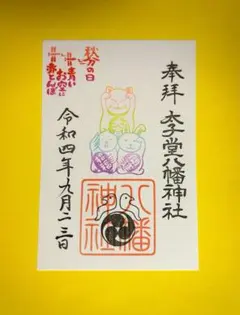 奉拝
太子堂八幡神社
秋分の日
青い
お空に
赤とんぼ
八幡
神社
令和四年九月二三日